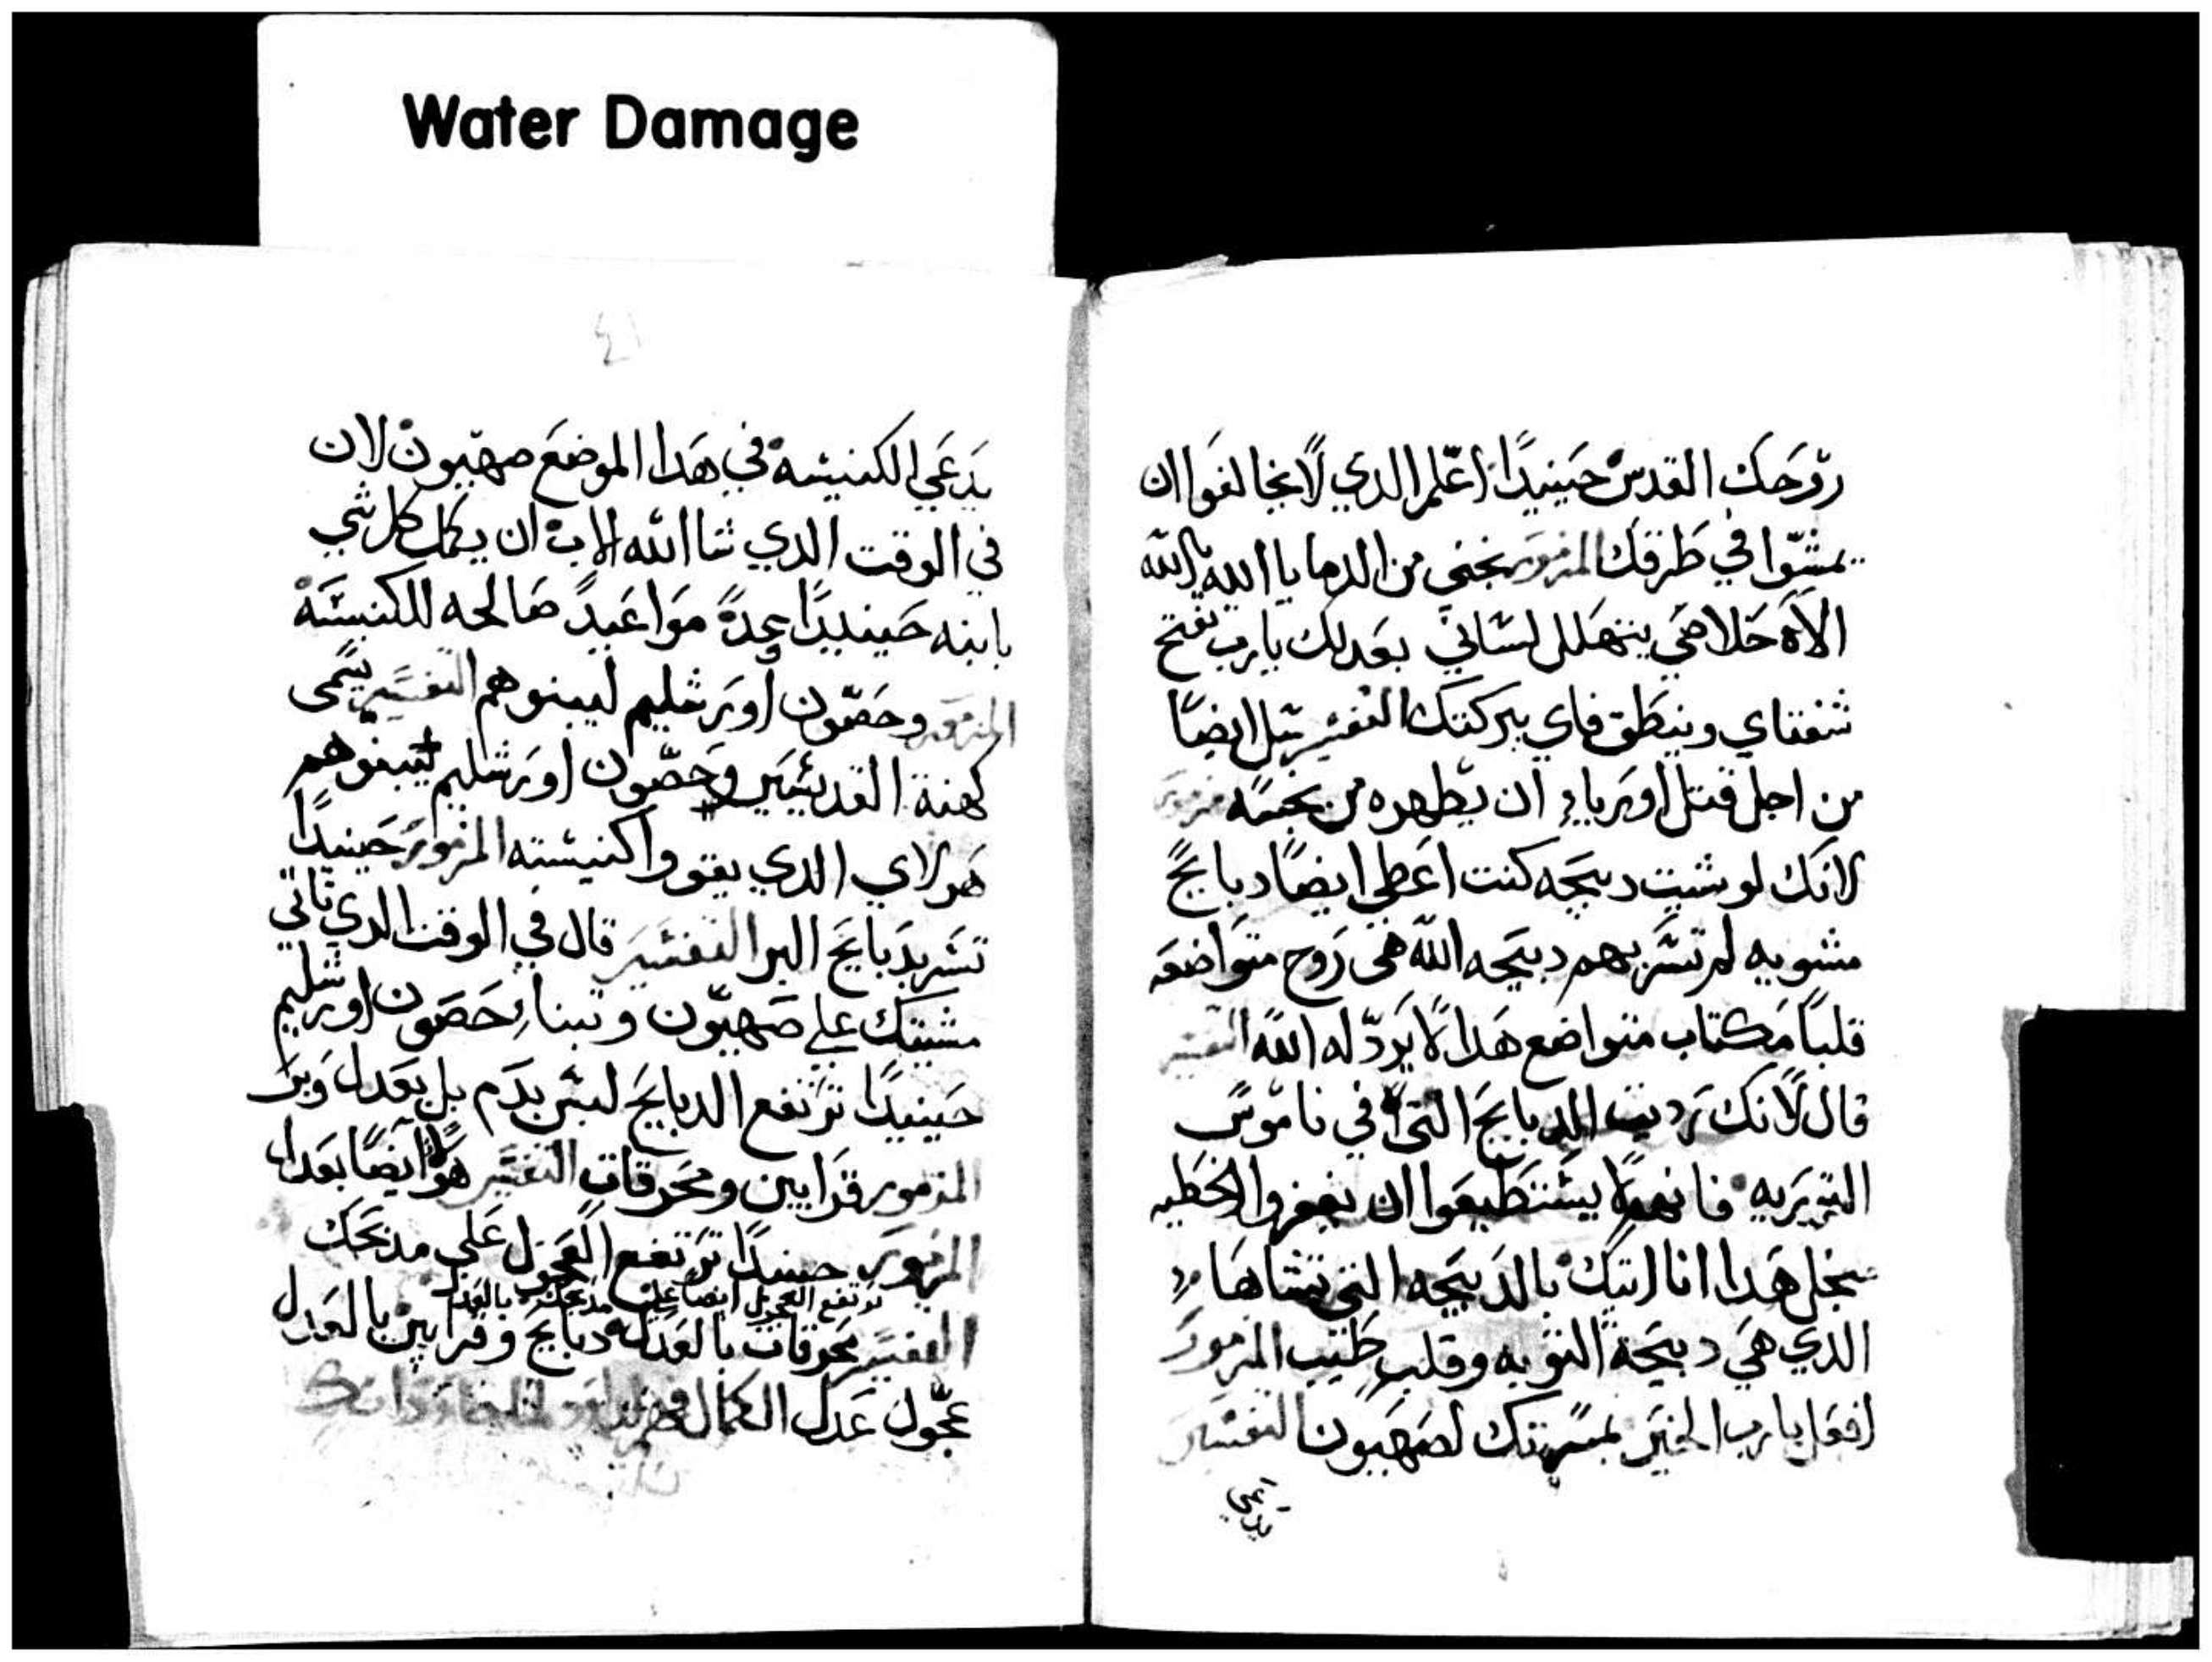 Water Damage
روحك القدس حينيدًا اعلم الدي لا يخالفوا ان
يمشوا في طرقك المزمور نجني من الدما يا الله يا الله
الاه خلاصي يتهلل لساني بعدلك يارب تفتح
شفتاي وينطق فاي ببركتك التفسير يتل ايضًا
من اجل قتل اورياء ان يطهره من نجسه مزمور
لانك لو شيت دبيحه كنت اعطي ايضًا دبايح
مشويه لم تسر بهم دبيحه الله هى روح متواضعه
قلبًا متواضع هدا لا يردله الله التفسير
قال لانك رديت الدبايح التى في ناموس
التبريريه فانهم لا يستطيعوا ان يغفروا الخطيه
هدا انا اتيك بالدبيحه التي تشاها
الدي هي دبيحة التوبه وقلب طيب المزمور
افعل يارب الخير بمسرتك لصهيون التفسير
يدعي
يدعي الكنيسة في هدا الموضع صهيون لان
في الوقت الدي شا الله الاب ان يكمل كل شي
بابنه حينيدًا عدة مواعيد صالحه للكنيسة
المزمور وحصون اورشليم ليبنوهم التفسير يسمى
كهنة القديسين وحصون اورشليم ليبنوهم
هولاي الدي يقووا كنيسته المزمور حينيدًا
تسر بدبايح البر التفسير قال في الوقت الدي تاتي
مشيتك على صهيون وتبنا حصون اورشليم
حينيدًا ترتفع الدبايح ليس بدم بل بعدل وبر
المزمور قرابين ومحرقات التفسير هوًلا ايضًا بعدل
المزمور حينيدًا ترتفع العجول على مدبحك
ترتفع العجول ايضا على مدبحك بالعدل
التفسير محرقات بالعدل دبايح وقرابين بالعدل
عجول عدل الكمال